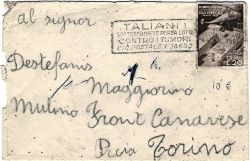 al signor
ITALIANI!
SOTTOSCRIVETE PER LA LOTTA
CONTRO I TUMORI
C/C POSTALE 1/30603
Destefanis
Maggiorino
10€
Mulino Front Canavese
Torino